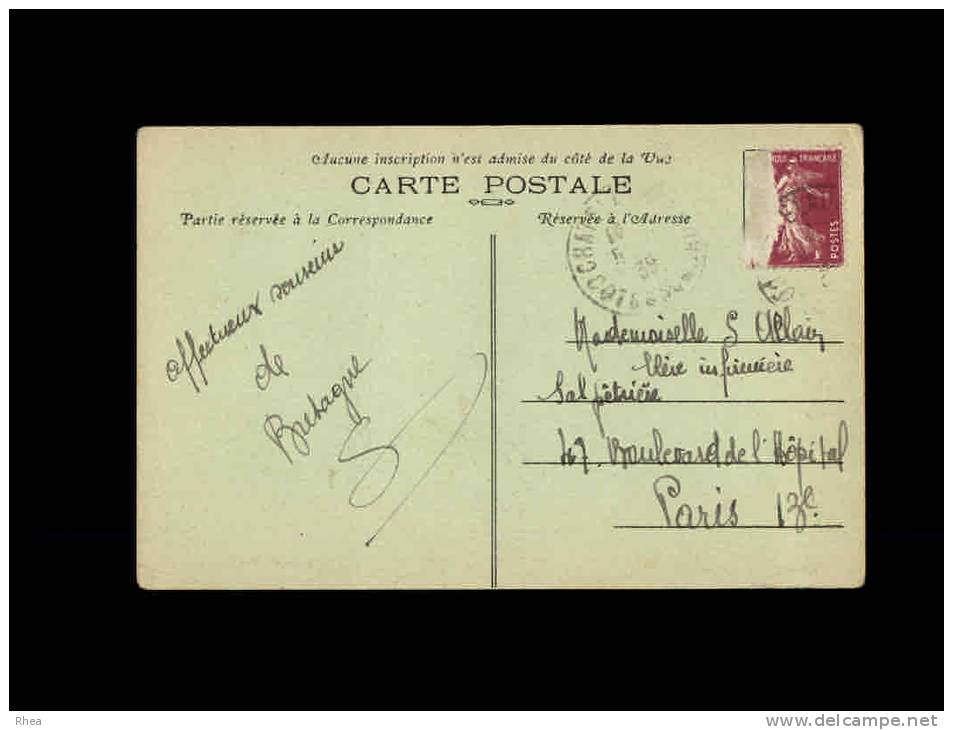 Aucune inscription n'est admise du côté de la Vue
CARTE POSTALE
Partie réservée à la Correspondance
Réservée à l'Adresse
FRANÇAISE
POSTES
affectueux souvenir
de
Bretagne
Mademoiselle S Allain
Elève infirmière
Salpêtrière
47 Boulevard de l'Hôpital
Paris 13e
Rhea
www.delcampe.net